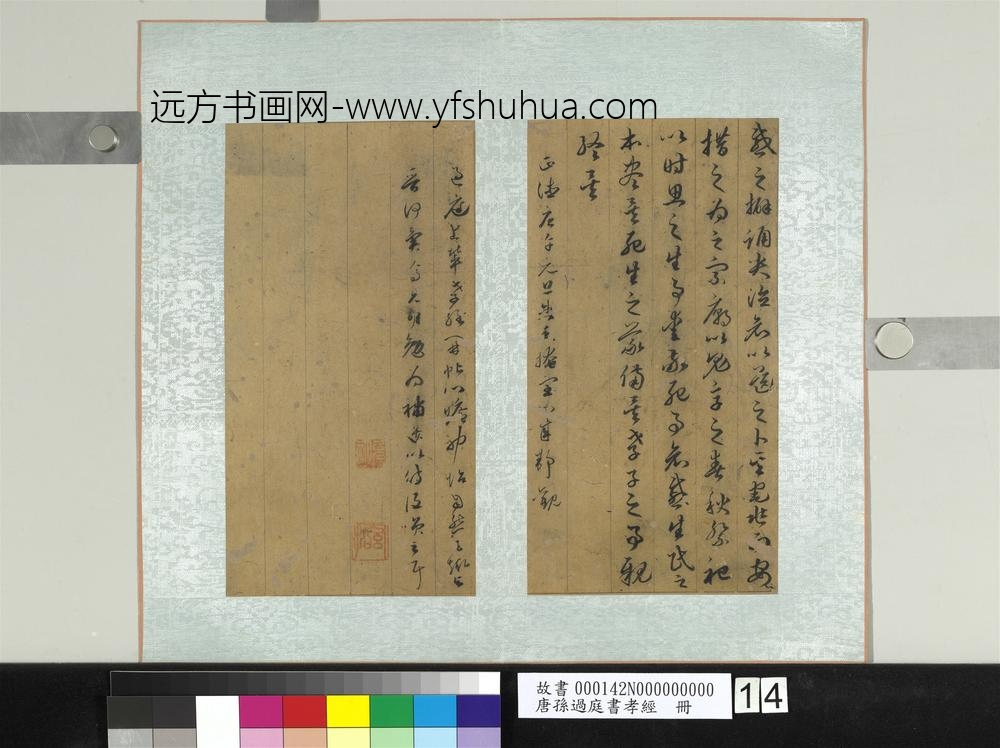 远方书画网-www.yfshuhua.com
慼之擗踊哭泣哀以送之卜其宅兆而安
措之為之宗廟以鬼享之春秋祭祀
以時思之生事愛敬死事哀慼生民之
本盡矣死生之義備矣孝子之事親
終矣
正德庚午元旦焚香 靜觀
過庭 孝經一冊 心曠神怡
為補遺以待後 云耳
故書 000142N000000000
唐孫過庭書孝經 冊
14